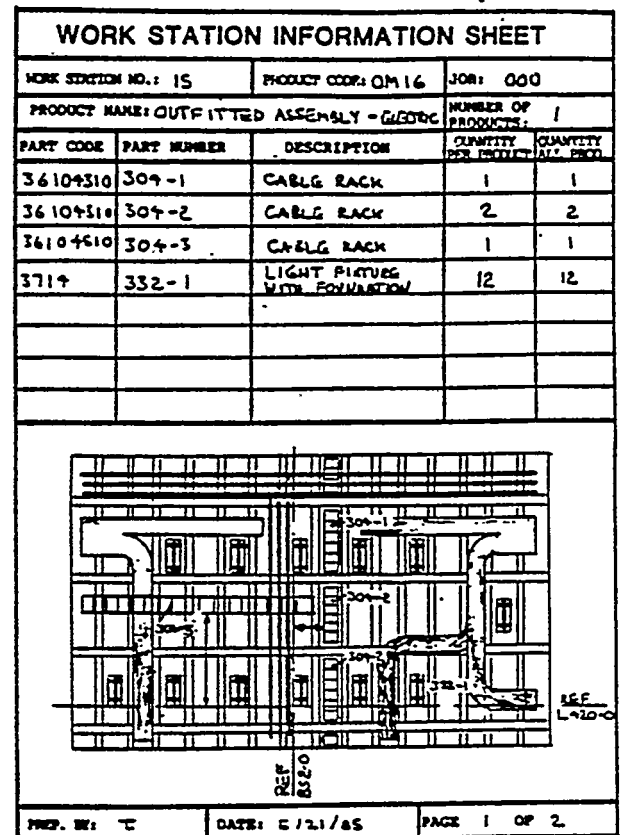 WORK STATION INFORMATION SHEET
WORK STATION NO.: 15 PRODUCT CODE: OM16 JOB: 000
PRODUCT NAME: OUTFITTED ASSEMBLY - ELECTRIC NUMBER OF PRODUCTS: 1
PART CODE PART NUMBER DESCRIPTION QUANTITY PER PRODUCT QUANTITY ALL PROD.
36104310 304-1 CABLE RACK 1 1
36104310 304-2 CABLE RACK 2 2
36104510 304-3 CABLE RACK 1 1
3714 332-1 LIGHT FIXTURE WITH FOUNDATION 12 12
304-1
304-2
304-3
304-2
332-1
REF
L420-0
REF
BS2-0
PREP. BY: T DATE: 5/21/85 PAGE 1 OF 2